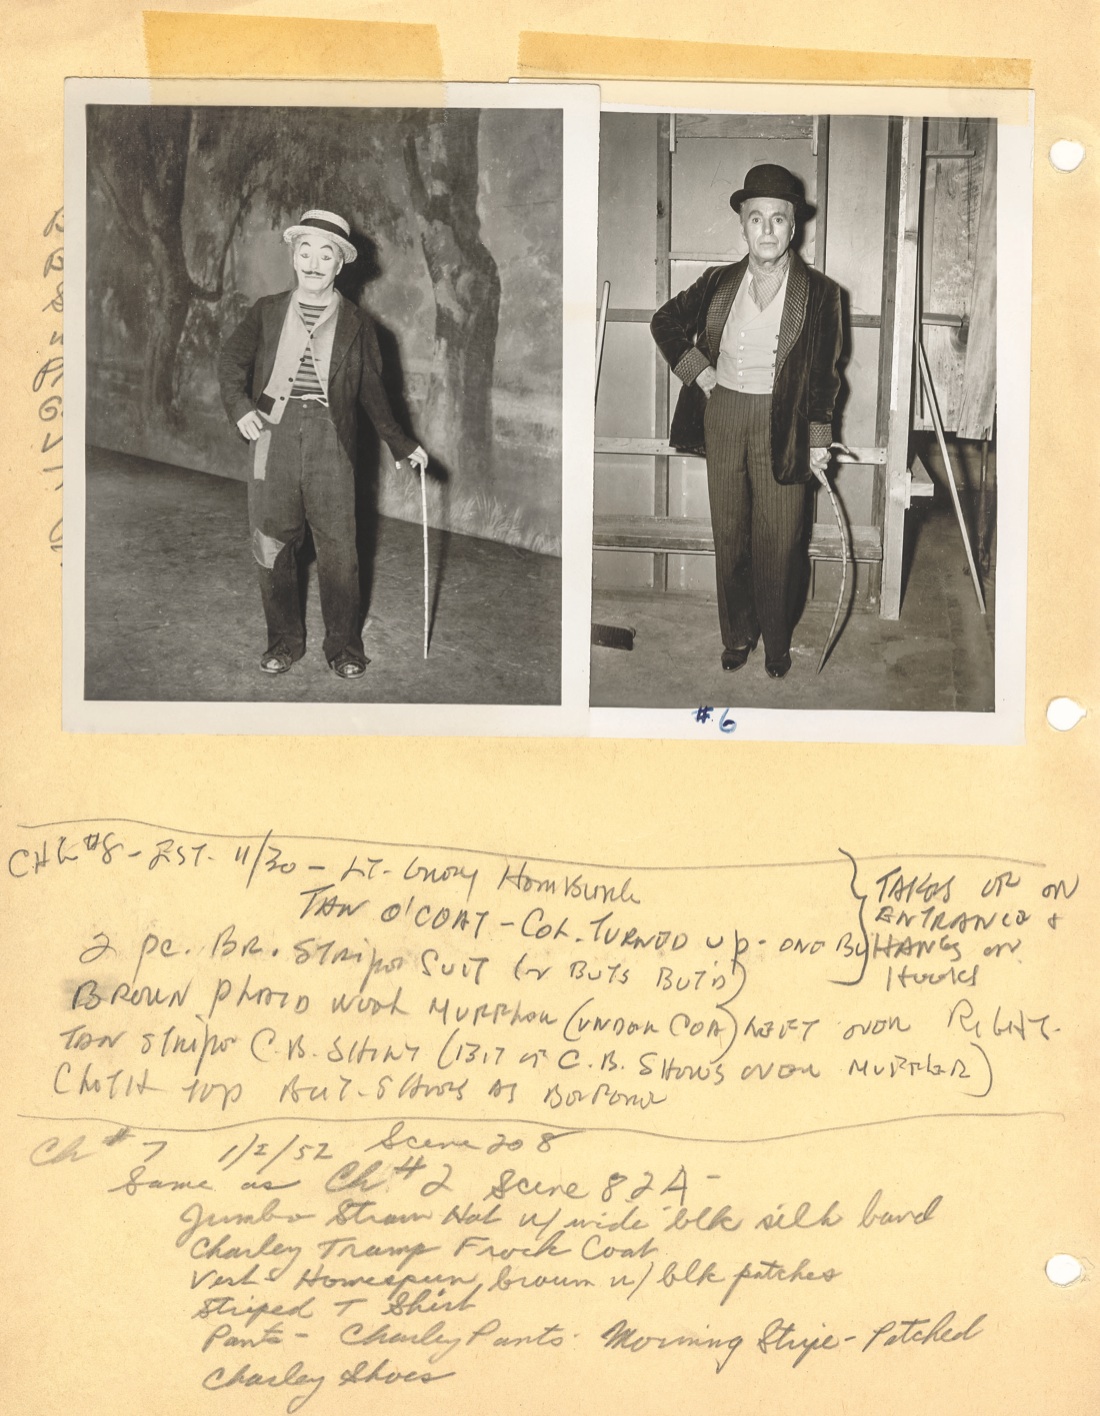 #6
CH #8 - EST. 11/30 - LT. Grey Homburg
TAN O'COAT - COL. TURNED UP - ONE BU
2 pc. BR. Stripe SUIT (2 BUTS BUT'D)
TAKES OFF ON
ENTRANCE &
HANGS ON
HOOKS
BROWN PLAID WOOL MUFFLER (UNDER COAT) LEFT OVER RIGHT.
TAN STRIPE C.B. SHIRT (BIT OF C.B. SHOWS OVER MUFFLER)
CLOTH TOP BUT. SHOES AS BEFORE
Ch #7 1/2/52 Scene 208
Same as Ch #2 Scene 82A -
Jumbo Straw Hat w/ wide blk silk band
Charley Tramp Frock Coat
Vest - Homespun, brown w/ blk patches
Striped T Shirt
Pants - Charley Pants. Morning Stripe - Patched
Charley Shoes